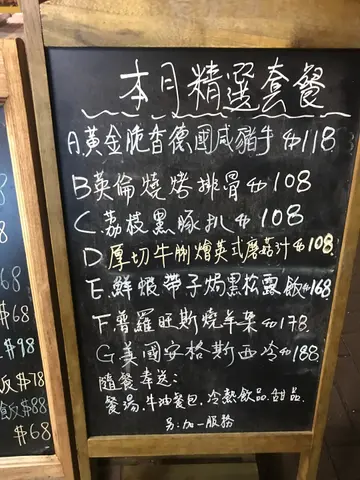 本月精選套餐
A.黃金脆香德國咸豬手$118
B英倫燒烤排骨$108
C.荔枝黑豚扒$108
D.厚切牛脷燴英式蘑菇汁$108.
E.鮮蝦帶子焗黑松露飯$168
F.普羅旺斯燒羊架$178.
G美國安格斯西冷$188
隨餐奉送:
餐湯.牛油餐包.冷熱飲品.甜品
另:加一服務
$8
$98
飯$78
飯$88
$68